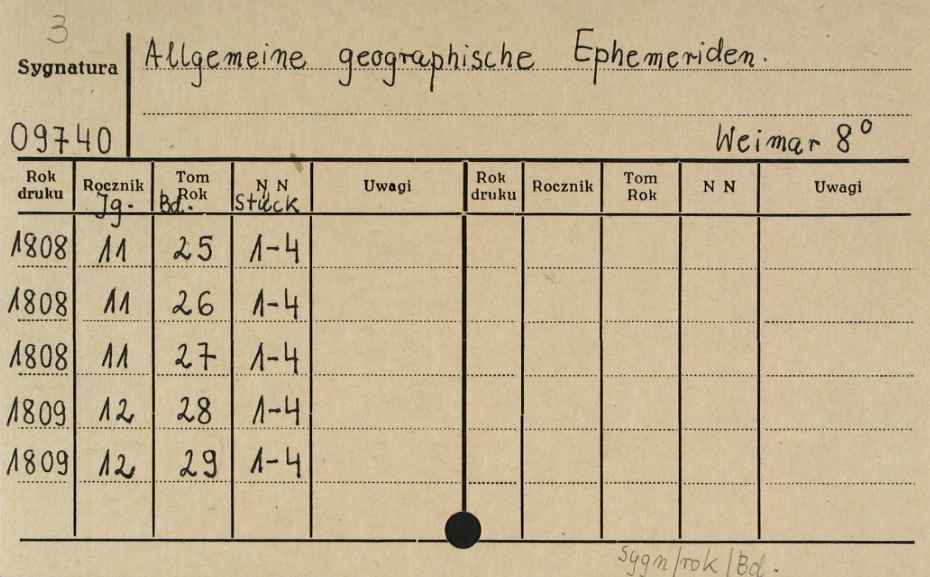 3
Sygnatura Allgemeine geographische Ephemeriden.
09740 Weimar 8°
Rok druku Rocznik Tom Rok N N Uwagi Rok druku Rocznik Tom Rok N N Uwagi
Jg. Bd. Stück
1808 11 25 1-4
1808 11 26 1-4
1808 11 27 1-4
1809 12 28 1-4
1809 12 29 1-4
Sygn/rok/Bd.